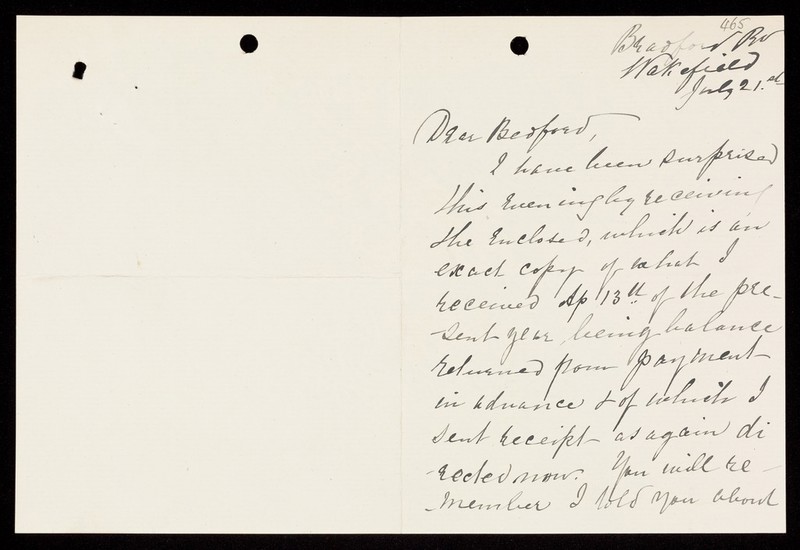 465
Bradford Rd
Wakefield
July 21.st
Dear Bedford,
I have been surprised
this evening by receiving
the enclosed, which is an
exact copy of what I
received Ap 13th of the pre-
sent year, being balance
returned from payment
in advance & of which I
sent receipt as again di
rected now. You will re-
member I told you about